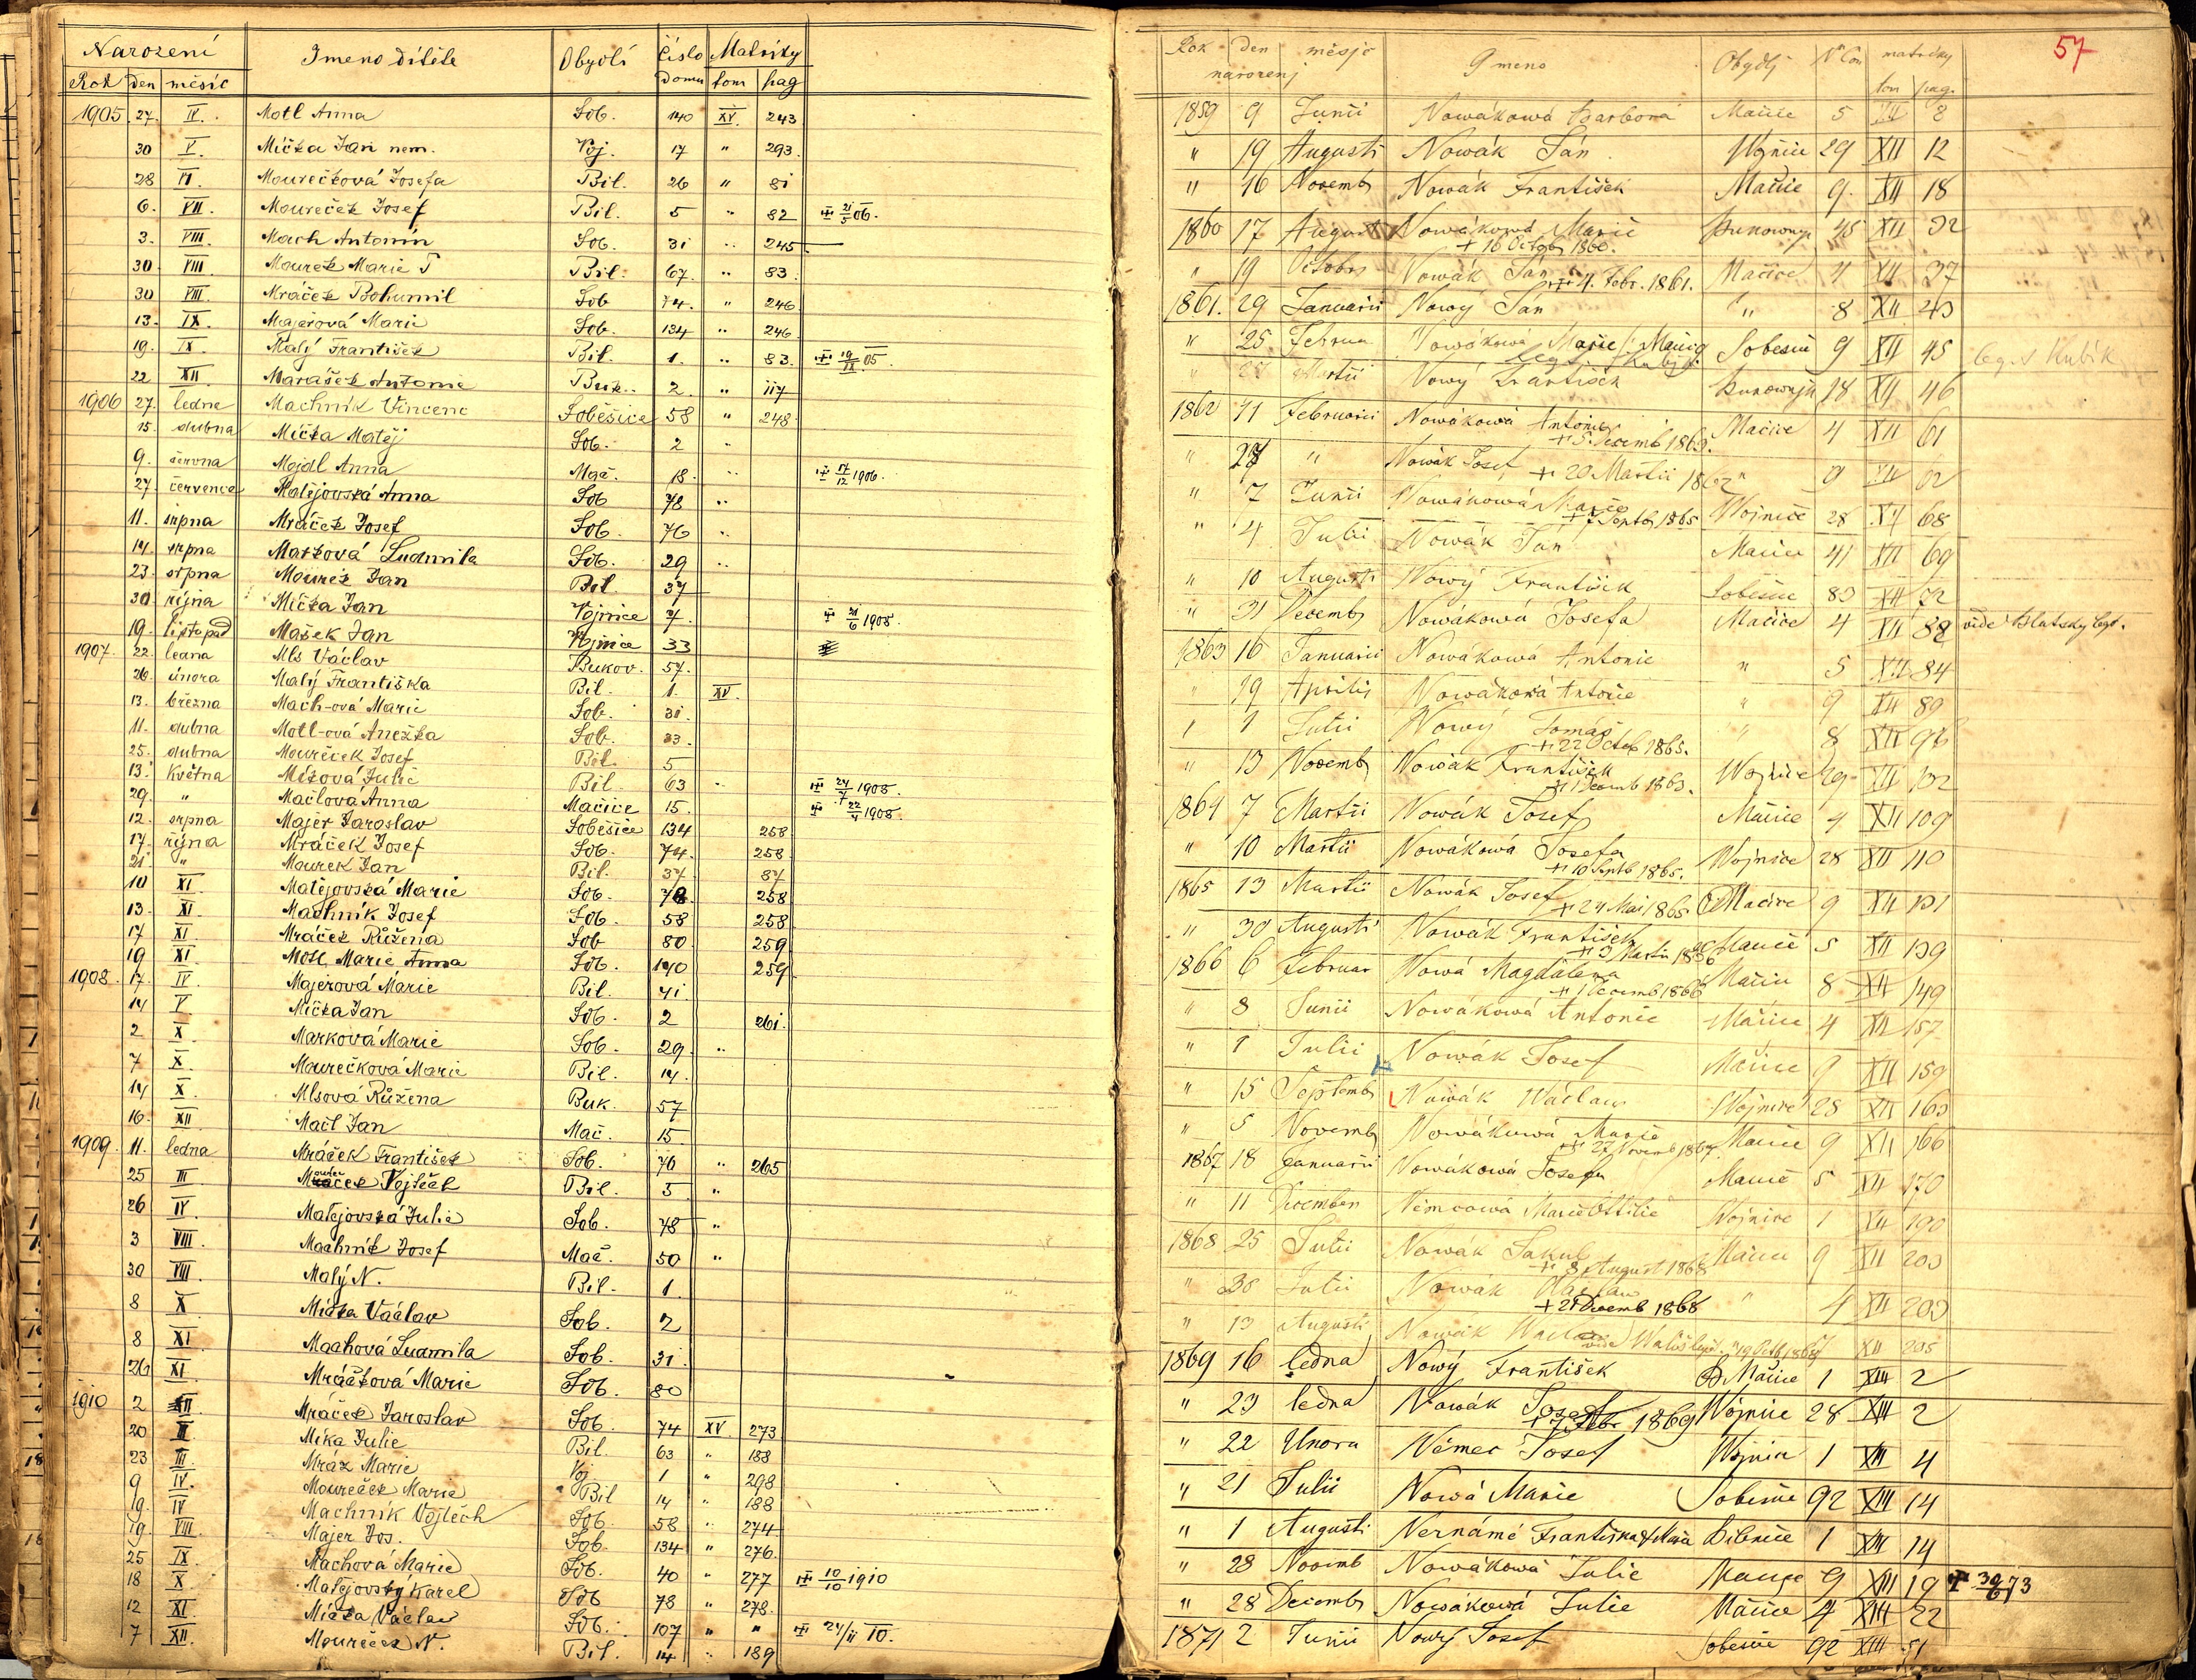 Narození Jmeno dítěte Obydlí Číslo domu Matriky
Rok den měsíc tom pag
1905 27. IV. Motl Anna Sob. 140 XV. 243
30 V. Míčka Jan nem. Voj. 17 " 293.
28 VI. Mourečková Josefa Bil. 26 " 81
6. VII. Moureček Josef Bil. 5 " 82 21/5 06.
3. VIII. Mach Antonín Sob. 31 " 245
30. VIII. Mourek Marie T Bil. 67. " 83.
30 VIII. Mráček Bohumil Sob 74. " 246
13. IX. Majerová Marie Sob. 134 " 246
19. IX. Malý František Bil. 1. " 83. 19/IX 05.
22 XII. Buk. 2. " 117
1906 27. ledna Machník Vincenc Soběšice 58 " 248
15. dubna Míčka Matěj Sob. 2 "
9. června Mojdl Anna Mač. 18. " 17/12 1906.
27. července Matějovská Anna Sob 78 "
11. srpna Mráček Josef Sob. 76 "
14. srpna Marková Ludmila Sob. 29 "
23. srpna Mourek Jan Bil. 37
30. října Míčka Jan Vojnice 7. 21/6 1908.
19. listopad Mašek Jan Vojnice 33
1907. 22. ledna Mls Václav Bukov. 57.
26. února Malý Františka Bil. 1. XV.
13. března Mach-ová Marie Sob. 31.
11. dubna Motl-ová Anežka Sob. 33.
25. dubna Moureček Josef Bil. 5
13. května Míková Julie Bil. 63 " 24/7 1908.
29. " Mačlová Anna Mačice 15. 22/4 1908.
12. srpna Majer Jaroslav Soběšice 134 258
17. října Mráček Josef Sob. 74. 258
21. " Mourek Jan Bil. 37. 87
10 XI. Matějovská Marie Sob. 78. 258
13. XI. Machník Josef Sob. 58 258
17 XI. Mráček Růžena Sob 80. 259
19 XI. Motl Marie Anna Sob. 140 259
1908. 17. IV. Majerová Marie Bil. 41.
14 V. Míčka Jan Sob. 2 261.
2 X. Marková Marie Sob. 29. "
7 X. Maurečková Marie Bil. 14.
14 X. Mlsová Růžena Buk. 57
16. XII. Mačl Jan Mač. 15
1909. 11. ledna Mráček František Sob. 76 " 265
25 III. Vojtěch Bil. 5 "
26 IV. Matějovská Julie Sob. 78 "
3 VIII. Machník Josef Mač. 50 "
30 VIII. Malý N. Bil. 1.
8 X. Míčka Václav Sob. 2
8 XI. Machová Ludmila Sob. 31.
26 XI. Mráčková Marie Sob. 80
1910 2 Mráček Jaroslav Sob. 74 XV. 273
20 Míka Julie Bil. 63 " 188
23 III. Mráz Marie Voj. 1 " 298
9 IV. Moureček Marie Bil 14 " 188
19. IV Machník Vojtěch Sob. 58 " 274
19. VIII. Majer Jos. Sob. 134 " 276.
25 IX. Machová Marie Sob. 40 " 277 10/10 1910
18 X. Matějovský Karel Sob 78 " 278.
12 XI. Míčka Václav Sob. 107 " " 24/11 10.
7 XII. Moureček N. Bil. 14 " 189
57
Rok den měsjc Gmeno Obydlj matriky
narozenj tom pag.
1859 9 Junii Nowákowá Barbora Mačice 5 XII 8
" 19 Augusti Nowák Ján Wojnice 29 XII 12
" 16 Novemb Nowák František Mačice 9. XII 18
1860 17 August Nowákowá Marie 45 XII 32
+ 16 Octob 1860.
" 19 Octobr Nowák Ján Mačice 4 XII 37
+ 4. Febr. 1861.
1861. 29 Januarii Nowy Ján " 8 XII 43
" 25 Februar Nowákowá Marie Sobesice 9 XII 45 leg. Kubik
" Martii Nowý František 18 XII 46
1862 11 Februarii Nowákowá Antonie Mačice 4 XII 61
" " Nowák Josef + 20 Martii 1862 " 9 XII 62
" 7 Junii Nowákowá Marie Wojnice 28 XII 68
+ Septb 1865
" 4 Julii Nowák Jan Mačice 41 XII 69
" 10 Augusti Nowý František Sobesice 83 XII 72
" 31 Decemb Nowákowá Josefa Mačice 4 XII 82
1863 16 Januarii Nowákowá Antonie " 5 XII 84
" 19 Aprilis Nowákowá Antonie " 9 XII 89
" 1 Julii Nowý Tomáš " 8 XII 96
+ 22 Octob 1865.
" 13 Novemb Nowák František Wojnice 29 XII 102
+ 1 Decemb 1863.
1864 7 Martii Nowák Josef Mačice 4 XII 109
" 10 Martii Nowákowá Josefa Wojnice 28 XII 110
+ 10 Septb 1865.
1865 13 Martii Nowák Josef Mačice 9 XII 131
+ 24 Mai 1865
" 30 Augusti Nowák František Mačice 5 XII 139
1866 6 Februar Nowá Magdalena Mačice 8 XII 149
+ 1 Decemb 1866
" 8 Junii Nowákowá Antonie Mačice 4 XII 157
" 1 Julii Nowák Josef Mačice 9 XII 159
" 15 Septemb Nowák Wáclaw Wojnice 28 XII 163
" 5 Novemb Nowákowá Marie Mačice 9 XII 166
+ 27 Novemb 1867
1867 18 Januarii Nowákowá Josefa Mačice 5 XII 170
" 11 Decembr Němcowá Marie Ottilie Wojnice 1 XII 190
1868 25 Julii Nowák Jakub Mačice 9 XII 203
+ 8 August 1868
" 30 Julii Nowák Wáclaw " 4 XII 203
+ 21 Decemb 1868
" 13 Augusti Nowák Waclaw XII 205
1869 16 ledna Nowý František Mačice 1 XIII 2
" 23 ledna Nowák Josef Wojnice 28 XIII 2
+ 7 Febr 1869
" 22 Unora Němec Josef Wojnice 1 XIII 4
" 21 Julii Nowá Marie Sobesice 92 XIII 14
" 1 Augusti Nernámé Františka 1 XIII 14
" 28 Novemb Nowákowá Julie Mačice 9 XIII 19 30/6 73
" 28 Decemb Nowákowá Julie Mačice 4 XIII 22
1871 2 Junii Nowý Josef Sobesice 92 XIII 51